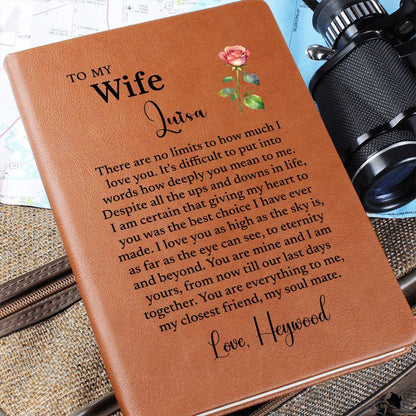 TO MY
Wife
Luisa
There are no limits to how much I
love you. It's difficult to put into
words how deeply you mean to me.
Despite all the ups and downs in life,
I am certain that giving my heart to
you was the best choice I have ever
made. I love you as high as the sky is,
as far as the eye can see, to eternity
and beyond. You are mine and I am
yours, from now till our last days
together. You are everything to me,
my closest friend, my soul mate.
Love, Heywood